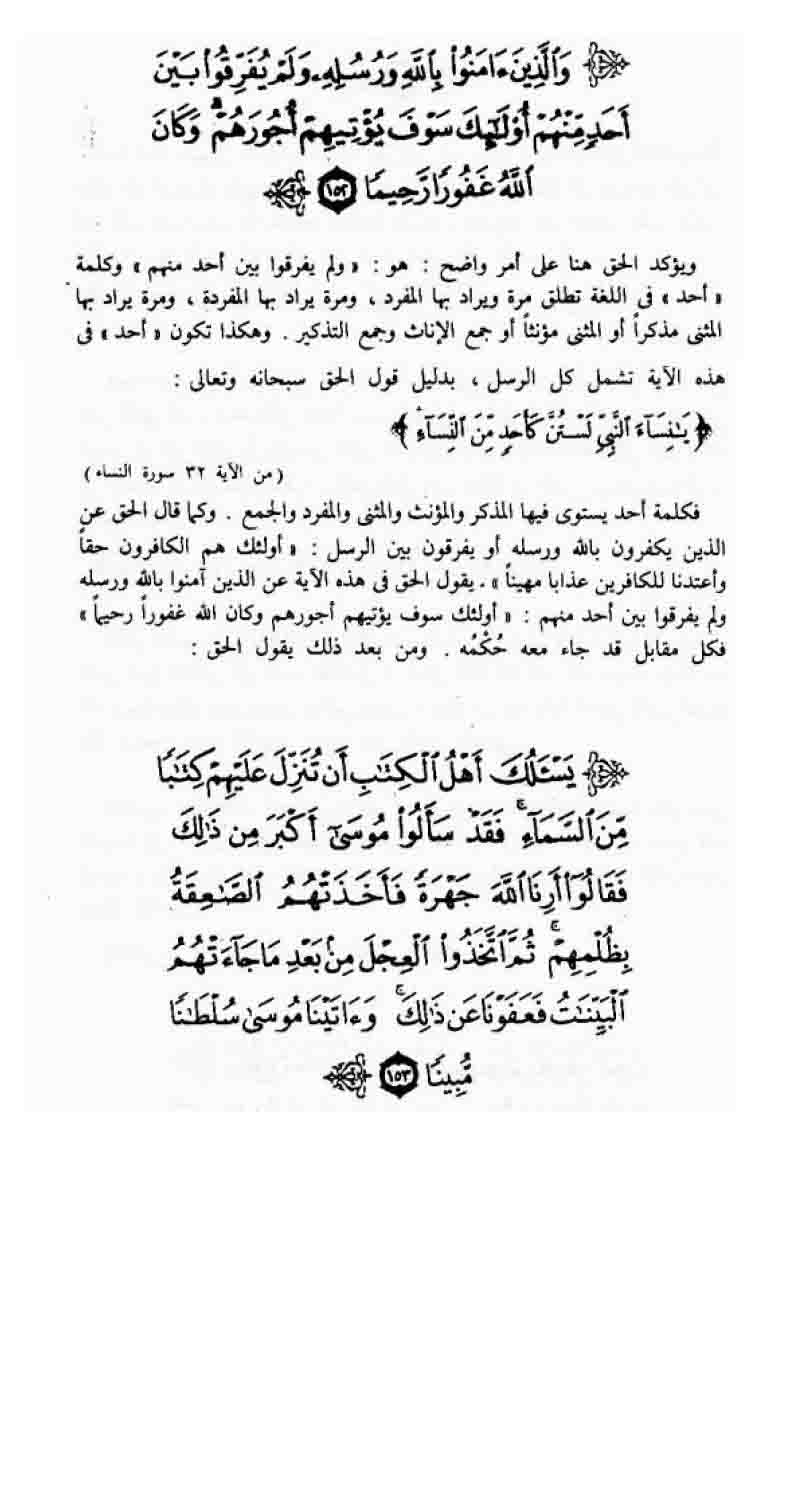 وَٱلَّذِينَ ءَامَنُوا۟ بِٱللَّهِ وَرُسُلِهِۦ وَلَمْ يُفَرِّقُوا۟ بَيْنَ
أَحَدٍ مِّنْهُمْ أُو۟لَٰٓئِكَ سَوْفَ يُؤْتِيهِمْ أُجُورَهُمْ ۗ وَكَانَ
ٱللَّهُ غَفُورًا رَّحِيمًا ١٥٢
ويؤكد الحق هنا على أمر واضح : هو : « ولم يفرقوا بين أحد منهم » وكلمة
« أحد » فى اللغة تطلق مرة ويراد بها المفرد ، ومرة يراد بها المفردة ، ومرة يراد بها
المثنى مذكراً أو المثنى مؤنثاً أو جمع الإناث وجمع التذكير . وهكذا تكون « أحد » فى
هذه الآية تشمل كل الرسل ، بدليل قول الحق سبحانه وتعالى :
﴿ يَٰنِسَآءَ ٱلنَّبِىِّ لَسْتُنَّ كَأَحَدٍ مِّنَ ٱلنِّسَآءِ ۚ ﴾
( من الآية ٣٢ سورة النساء )
فكلمة أحد يستوى فيها المذكر والمؤنث والمثنى والمفرد والجمع . وكما قال الحق عن
الذين يكفرون بالله ورسله أو يفرقون بين الرسل : « أولئك هم الكافرون حقاً
وأعتدنا للكافرين عذابا مهيناً » . يقول الحق فى هذه الآية عن الذين آمنوا بالله ورسله
ولم يفرقوا بين أحد منهم : « أولئك سوف يؤتيهم أجورهم وكان الله غفوراً رحيماً »
فكل مقابل قد جاء معه حُكْمُه . ومن بعد ذلك يقول الحق :
يَسْـَٔلُكَ أَهْلُ ٱلْكِتَٰبِ أَن تُنَزِّلَ عَلَيْهِمْ كِتَٰبًا
مِّنَ ٱلسَّمَآءِ ۚ فَقَدْ سَأَلُوا۟ مُوسَىٰٓ أَكْبَرَ مِن ذَٰلِكَ
فَقَالُوٓا۟ أَرِنَا ٱللَّهَ جَهْرَةً فَأَخَذَتْهُمُ ٱلصَّٰعِقَةُ
بِظُلْمِهِمْ ۚ ثُمَّ ٱتَّخَذُوا۟ ٱلْعِجْلَ مِنۢ بَعْدِ مَا جَآءَتْهُمُ
ٱلْبَيِّنَٰتُ فَعَفَوْنَا عَن ذَٰلِكَ ۚ وَءَاتَيْنَا مُوسَىٰ سُلْطَٰنًا
مُّبِينًا ١٥٣